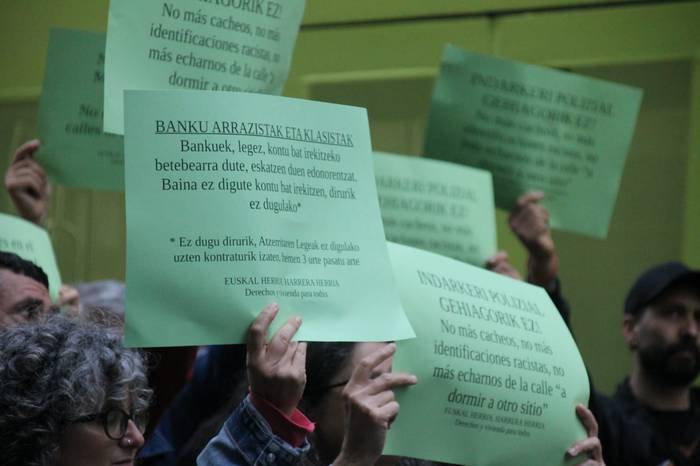 GEHIAGORIK EZ!
No más cacheos, no más
identificaciones racistas, no
más echarnos de la calle "a
dormir a otro sitio"
INDARKERI POLIZIAL
GEHIAGORIK EZ!
No más cacheos, no más
identificaciones racistas, no
más echarnos de la calle "a
dormir a otro sitio"
BANKU ARRAZISTAK ETA KLASISTAK
Bankuek, legez, kontu bat irekitzeko
betebearra dute, eskatzen duen edonorentzat.
Baina ez digute kontu bat irekitzen, dirurik
ez dugulako*
* Ez dugu dirurik, Atzerritaren Legeak ez digulako
uzten kontraturik izaten, hemen 3 urte pasatu arte.
EUSKAL HERRIA, HARRERA HERRIA
Derechos y vivienda para todxs
INDARKERI POLIZIAL
GEHIAGORIK EZ!
No más cacheos, no más
identificaciones racistas, no
más echarnos de la calle "a
dormir a otro sitio"
EUSKAL HERRIA, HARRERA HERRIA
Derechos y vivienda para todxs